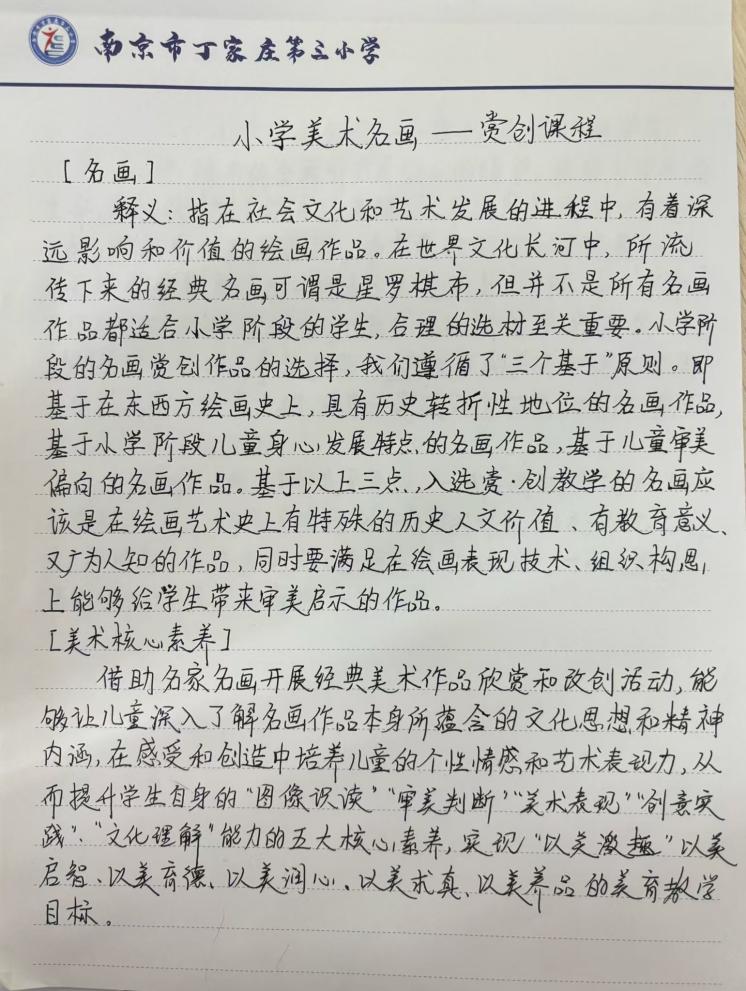 南京市丁家庄第三小学
小学美术名画——赏创课程
[名画]
释义：指在社会文化和艺术发展的进程中,有着深
远影响和价值的绘画作品。在世界文化长河中，所流
传下来的经典名画可谓是星罗棋布，但并不是所有名画
作品都适合小学阶段的学生,合理的选材至关重要。小学阶
段的名画赏创作品的选择，我们遵循了“三个基于”原则。即
基于在东西方绘画史上，具有历史转折性地位的名画作品,
基于小学阶段儿童身心发展特点的名画作品，基于儿童审美
偏向的名画作品。基于以上三点，入选赏·创教学的名画应
该是在绘画艺术史上有特殊的历史人文价值、有教育意义、
又广为人知的作品，同时要满足在绘画表现技术、组织构思
上能够给学生带来审美启示的作品。
[美术核心素养]
借助名家名画开展经典美术作品欣赏和改创活动,能
够让儿童深入了解名画作品本身所蕴含的文化思想和精神
内涵,在感受和创造中培养儿童的个性情感和艺术表现力,从
而提升学生自身的“图像识读”“审美判断”“美术表现”“创意实
践”、“文化理解”能力的五大核心素养,实现“以美激趣”以美
启智、以美育德、以美润心、以美求真、以美养品的美育教学
目标。